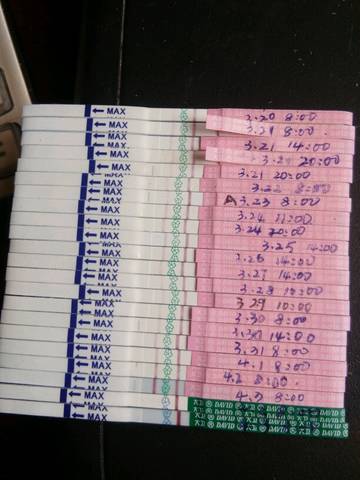 MAX 3.20 8:00
MAX 3.21 8:00
MAX 3.21 14:00
MAX 20:00
MAX 3.21 20:00
MAX 3.22 8:00
MAX 3.23 8:00
MAX 3.24 11:00
MAX 3.24 20:00
MAX 3.25 14:00
MAX 3.26 14:00
MAX 3.27 14:00
MAX 3.28 10:00
MAX 3.29 10:00
MAX 3.30 8:00
MAX 3.30 14:00
MAX 3.31 8:00
MAX 4.1 8:00
MAX 4.2 8:00
MAX 4.3 8:00
MAX DAVID
MAX DAVID